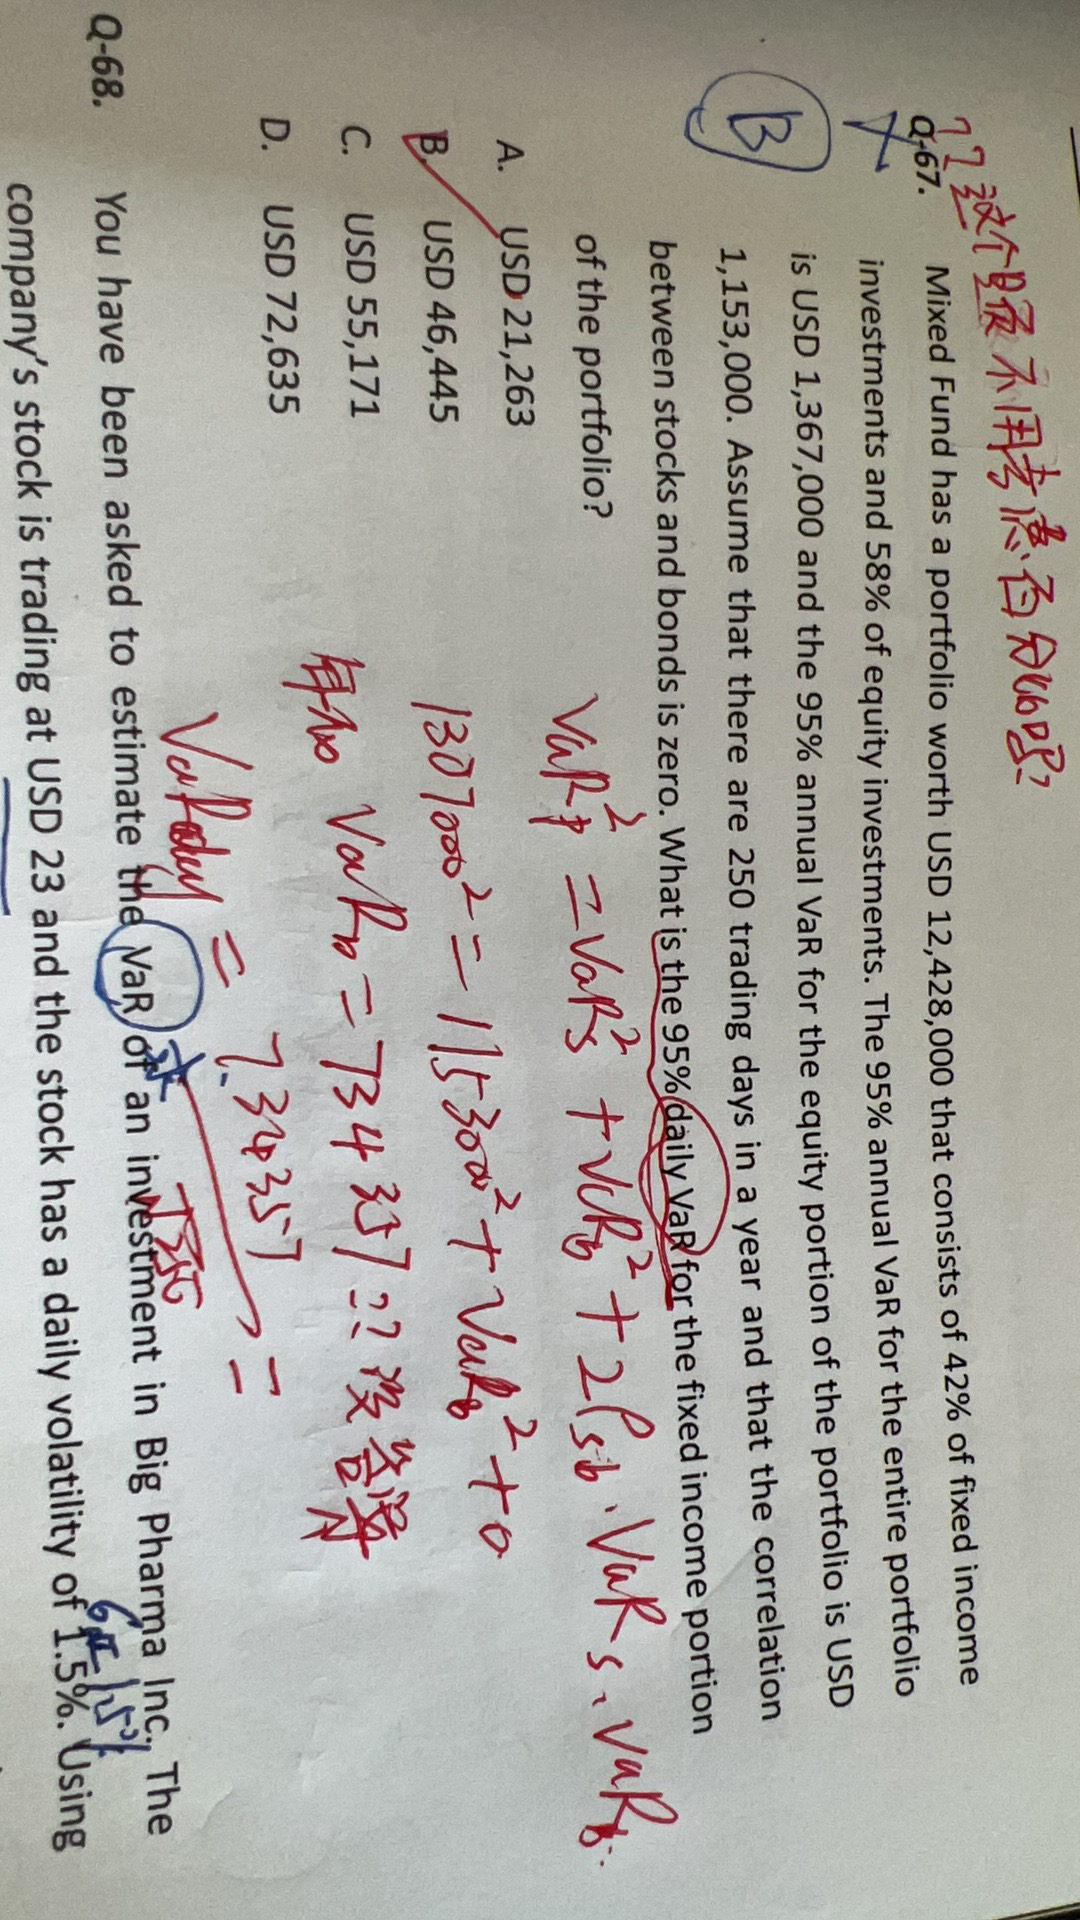 ??这个题不用考虑百分比吗?
Q-67. Mixed Fund has a portfolio worth USD 12,428,000 that consists of 42% of fixed income
investments and 58% of equity investments. The 95% annual VaR for the entire portfolio
is USD 1,367,000 and the 95% annual VaR for the equity portion of the portfolio is USD
1,153,000. Assume that there are 250 trading days in a year and that the correlation
between stocks and bonds is zero. What is the 95% daily VaR for the fixed income portion
of the portfolio?
B
A. USD 21,263
B. USD 46,445
C. USD 55,171
D. USD 72,635
VaRp² = VaRs² + VaRb² + 2ρsb·VaRs·VaRb
1307000² = 1153000² + VaRb² + 0
年化 VaRb = 734357 ?? 没答案
VaRday = 734357 =
√250
Q-68. You have been asked to estimate the VaR of an investment in Big Pharma Inc. The
company's stock is trading at USD 23 and the stock has a daily volatility of 1.5%. Using